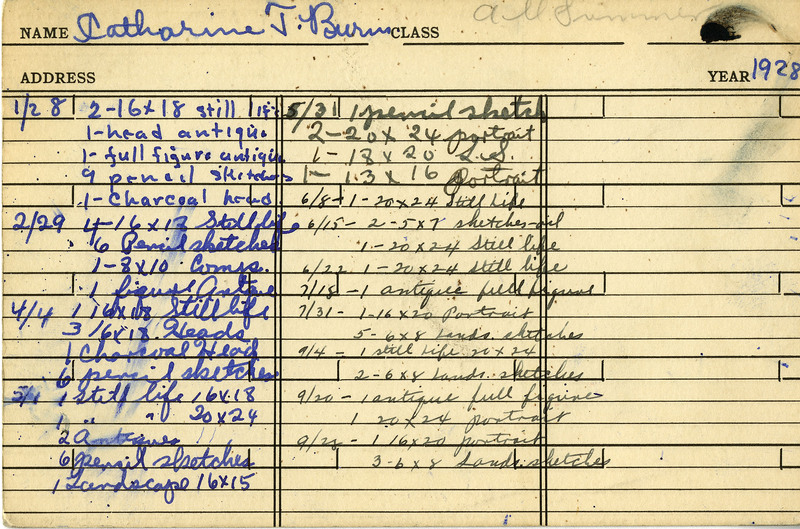 NAME Catharine T. Burns CLASS All Summer
ADDRESS YEAR 1928
1/28 2-16x18 still life
1-head antique
1-full figure antique
9 pencil sketches
1-Charcoal head
2/29 4-16x18 Still life
6 Pencil sketches
1-8x10 Comps.
1 figure Antique
4/4 1 16x18 Still life
3 16x18 Heads
1 Charcoal Head
6 pencil sketches
5/1 1 Still life 16x18
1 " " 20x24
2 Antiques
6 pencil sketches
1 Landscape 16x15
5/31 1 pencil sketch
2-20x24 portrait
1-18x20 L.S.
1-13x16 Portrait
6/8-1-20x24 Still Life
6/15-2-5x7 sketches-oil
1-20x24 Still life
6/22 1-20x24 still life
7/18-1 antique full figure
7/31-1-16x20 Portrait
5-6x8 Lands. sketches
9/4-1 still life 20x24
2-6x8 Lands. sketches
9/20-1 antique full figure
1 20x24 portrait
9/22-1 16x20 portrait
3-6x8 Lands. sketches